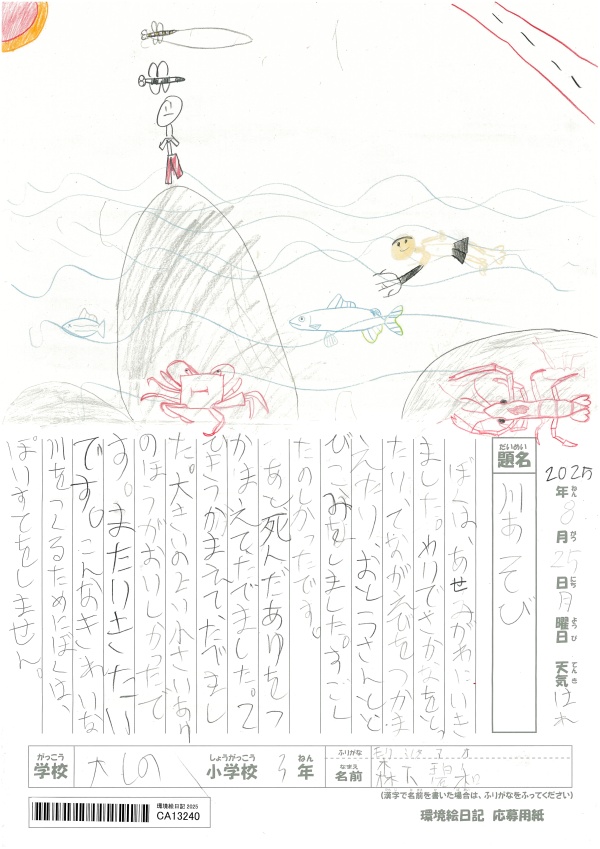 2025
年 ねん
8
月 がつ
25
日 にち
月
曜日 ようび
天気 てんき
はれ
題名 だいめい
川あそび
ぼくは、あせみがわにいき
ました。もりでさかなをとっ
たり、てながえびをつかま
えたり、おとうさんと
びこみをしました。すごく
たのしかったです。
あと死んだあゆをつ
かまえてたでました。2
ひきつかまえて、たべまし
た。大きいのより小さいあゆ
のほうがおいしかったで
す。またいきたい
です。こんなきれいな
川をつくるためにぼくは、
ぽいすてをしません。
学校 がっこう
小学校 しょうがっこう
3
年 ねん
ふりがな
名前 なまえ
森下 碧
(漢字で名前を書いた場合は、ふりがなをふってください)
環境絵日記 2025
CA13240
環境絵日記 応募用紙